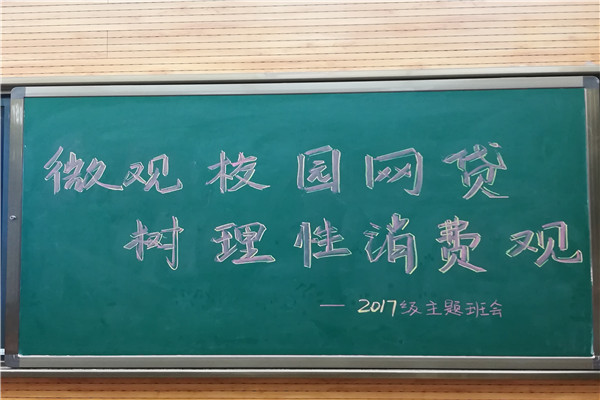 微观校园网贷
树理性消费观
—2017级主题班会